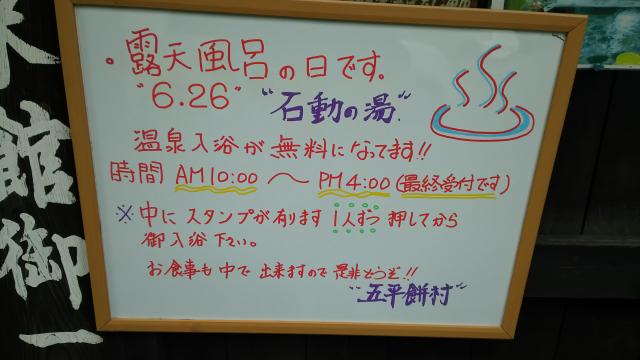 ・露天風呂の日です。
"6.26" "石動の湯"
温泉入浴が無料になってます!!
時間 AM10:00 〜 PM4:00(最終受付です)
※中にスタンプが有ります 1人ずつ 押してから
御入浴下さい。
お食事も中で出来ますので是非どうぞ!!
"五平餅村"
館御一